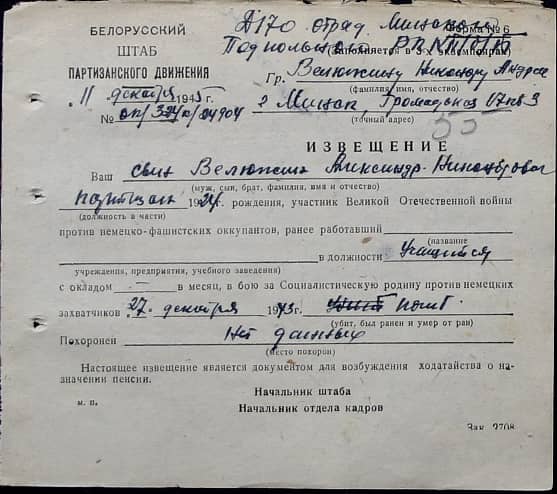 БЕЛОРУССКИЙ
ШТАБ
ПАРТИЗАНСКОГО ДВИЖЕНИЯ
11 декабря 1945 г.
№
отряд Форма № 6
(Заполняется в 3-х экземплярах)
Гр.
(фамилия, имя, отчество)
г Минск,
(точный адрес)
55
ИЗВЕЩЕНИЕ
Ваш сын Александр
(муж, сын, брат, фамилия, имя и отчество)
партизан 1924 г. рождения, участник Великой Отечественной войны
(должность в части)
против немецко-фашистских оккупантов, ранее работавший
(название
в должности Учащийся
учреждения, предприятия, учебного заведения)
с окладом — в месяц, в бою за Социалистическую родину против немецких
захватчиков 27 декабря 1943 г. погиб
(убит, был ранен и умер от ран)
Похоронен Нет данных
(место похорон)
Настоящее извещение является документом для возбуждения ходатайства о на-
значении пенсии.
Начальник штаба
м. п.
Начальник отдела кадров
Зак. 2708